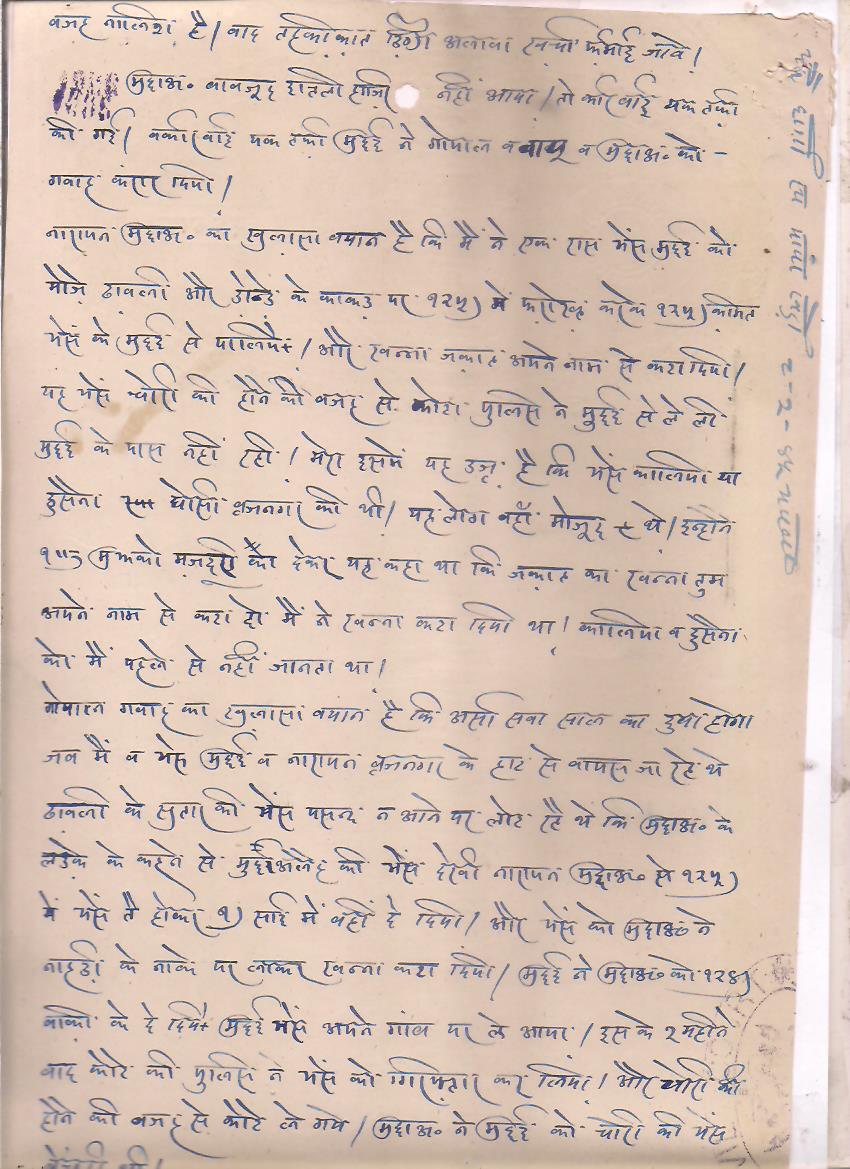 वजह नालिश है। बाद तहकीकात डिग्री अलावा खर्चा फर्माई जावे।
मुद्दाअ० बावजूद इत्तला हाजिर नहीं आया। तो कार्रवाई यक तर्फा
की गई। बर्कारवाई यक तर्फा मुद्दई ने गोपाल व बापू व मुद्दाअ० को -
गवाह करार दिया।
नारायन मुद्दाअ० का खुलासा बयान है कि मैं ने एक रास भेंस मुद्दई को
मौजे ढाबली और के काकड पर १२५) में फरोख्त करके १२५) कीमत
भेंस के मुद्दई से पालिये। और रवन्ना जकात अपने नाम से करा दिया।
यह भेंस चोरी की होने की वजह से कोटा पुलिस ने मुद्दई से ले ली
मुद्दई के पास नहीं रही। मेरा इसमें यह उज्र है कि भेंस कालिया या
हुसेना घोसी बृजनगर की थी। यह लोग वहाँ मोजूद थे। इन्होंने
मुझको मजदूरी का देकर यह कहा था कि जकात का रवन्ना तुम
अपने नाम से करा दो मैं ने रवन्ना करा दिया था। कालिया व हुसेना
को मैं पहले से नहीं जानता था।
गोपाल गवाह का खुलासा बयान है कि अर्सा सवा साल का हुआ होगा
जब मैं व मुद्दई व नारायन बृजनगर के हाट से वापस जा रहे थे
ढाबली के सुतार की भेंस पसन्द न आने पर लोट रहे थे कि मुद्दाअ० के
लडके के कहने से मुद्दईअलेह की भेंस देखी नारायन मुद्दाअ० से १२५)
में भेंस तै होकर १) साई में वहीं दे दिया। और भेंस को मुद्दाअ० ने
के नाके पर लाकर रवन्ना करा दिया। मुद्दई ने मुद्दाअ० को १२४)
बाकी के दे दिये मुद्दई भेंस अपने गांव पर ले आया। इस के २ महीने
बाद कोटे की पुलिस ने भेंस को गिरफ्तार कर लिया। और चोरी की
होने की वजह से कोटे ले गये। मुद्दाअ० ने मुद्दई को चोरी की भेंस